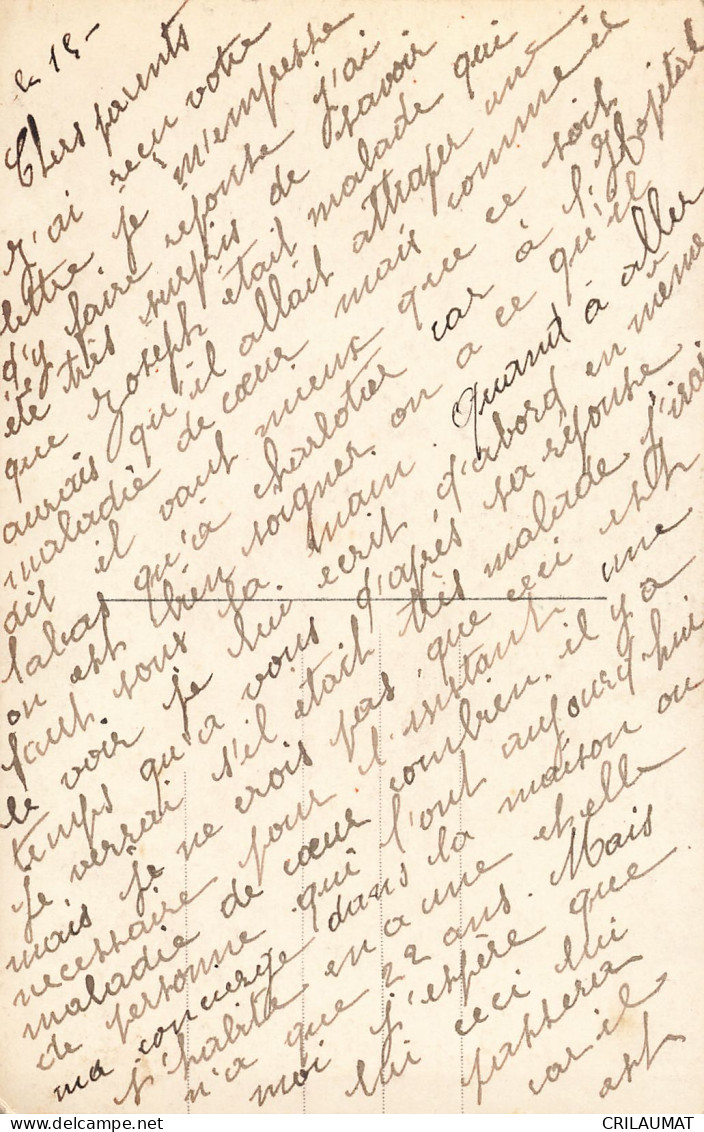 le 15-
Chers parents
J'ai reçu votre
lettre je m'empresse
d'y faire reponse j'ai
été très surpris de savoir
que Joseph était malade qui
aurais qu'il allait attraper une
maladie de cœur mais comme il
dit il vaut mieux que ce soit
labas qu'à Charlotier car à l'Hopital
on est bien soigner on a ce qu'il
faut sous la main. Quand à aller
le voir je lui ecrit d'abord en même
temps qu'a vous d'après sa réponse
je verrai s'il était très malade j'irai
mais je ne crois pas que ceci est
necessaire pour l'instant une
maladie de cœur combien il y a
de personne qui l'ont aujourd'hui
ma concierge dans la maison ou
j'habite en a une et elle
n'a que 22 ans. Mais
moi j'espère que
lui ceci lui
passera
car il
est
CRILAUMAT